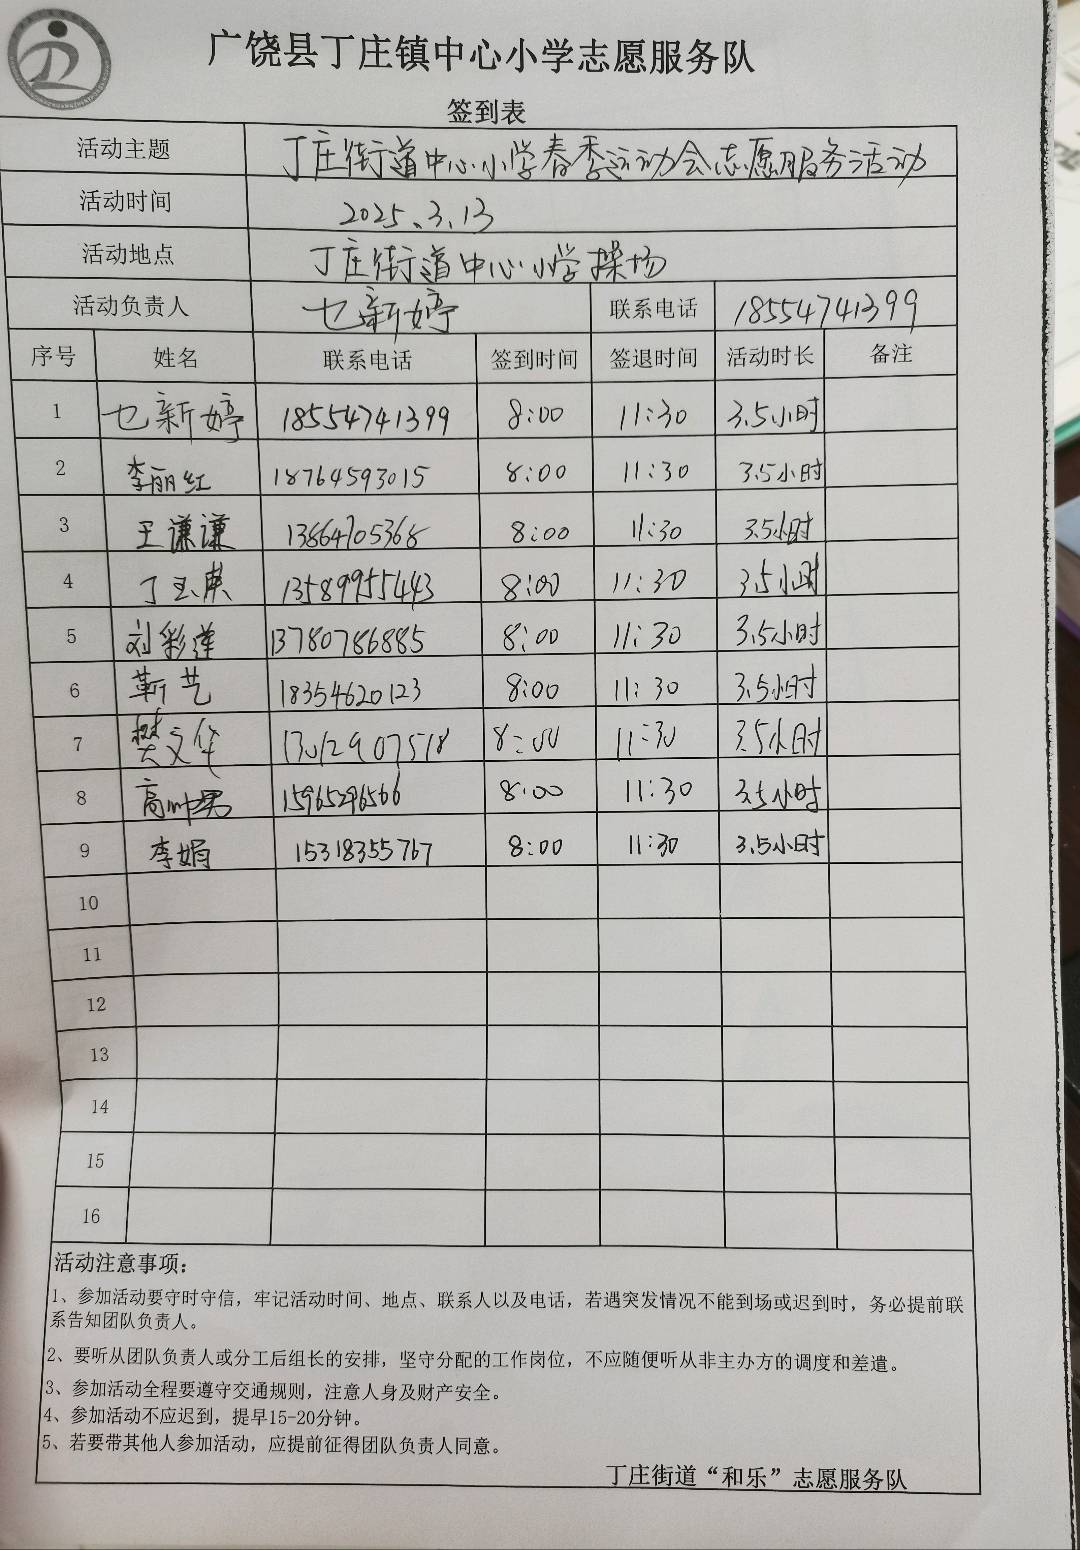 广饶县丁庄镇中心小学志愿服务队
签到表
活动主题 丁庄街道中心小学春季运动会志愿服务活动
活动时间 2025.3.13
活动地点 丁庄街道中心小学操场
活动负责人 乜新婷 联系电话 18554741399
序号 姓名 联系电话 签到时间 签退时间 活动时长 备注
1 乜新婷 18554741399 8:00 11:30 3.5小时
2 李丽红 18764593015 8:00 11:30 3.5小时
3 王谦谦 13864705368 8:00 11:30 3.5小时
4 丁玉 13589955443 8:00 11:30 3.5小时
5 刘彩莲 13780786885 8:00 11:30 3.5小时
6 靳艺 18354620123 8:00 11:30 3.5小时
7 樊文华 13012907518 8:00 11:30 3.5小时
8 高 15965296566 8:00 11:30 3.5小时
9 李娟 15318355767 8:00 11:30 3.5小时
10
11
12
13
14
15
16
活动注意事项:
1、参加活动要守时守信，牢记活动时间、地点、联系人以及电话，若遇突发情况不能到场或迟到时，务必提前联
系告知团队负责人。
2、要听从团队负责人或分工后组长的安排，坚守分配的工作岗位，不应随便听从非主办方的调度和差遣。
3、参加活动全程要遵守交通规则，注意人身及财产安全。
4、参加活动不应迟到，提早15-20分钟。
5、若要带其他人参加活动，应提前征得团队负责人同意。
丁庄街道“和乐”志愿服务队